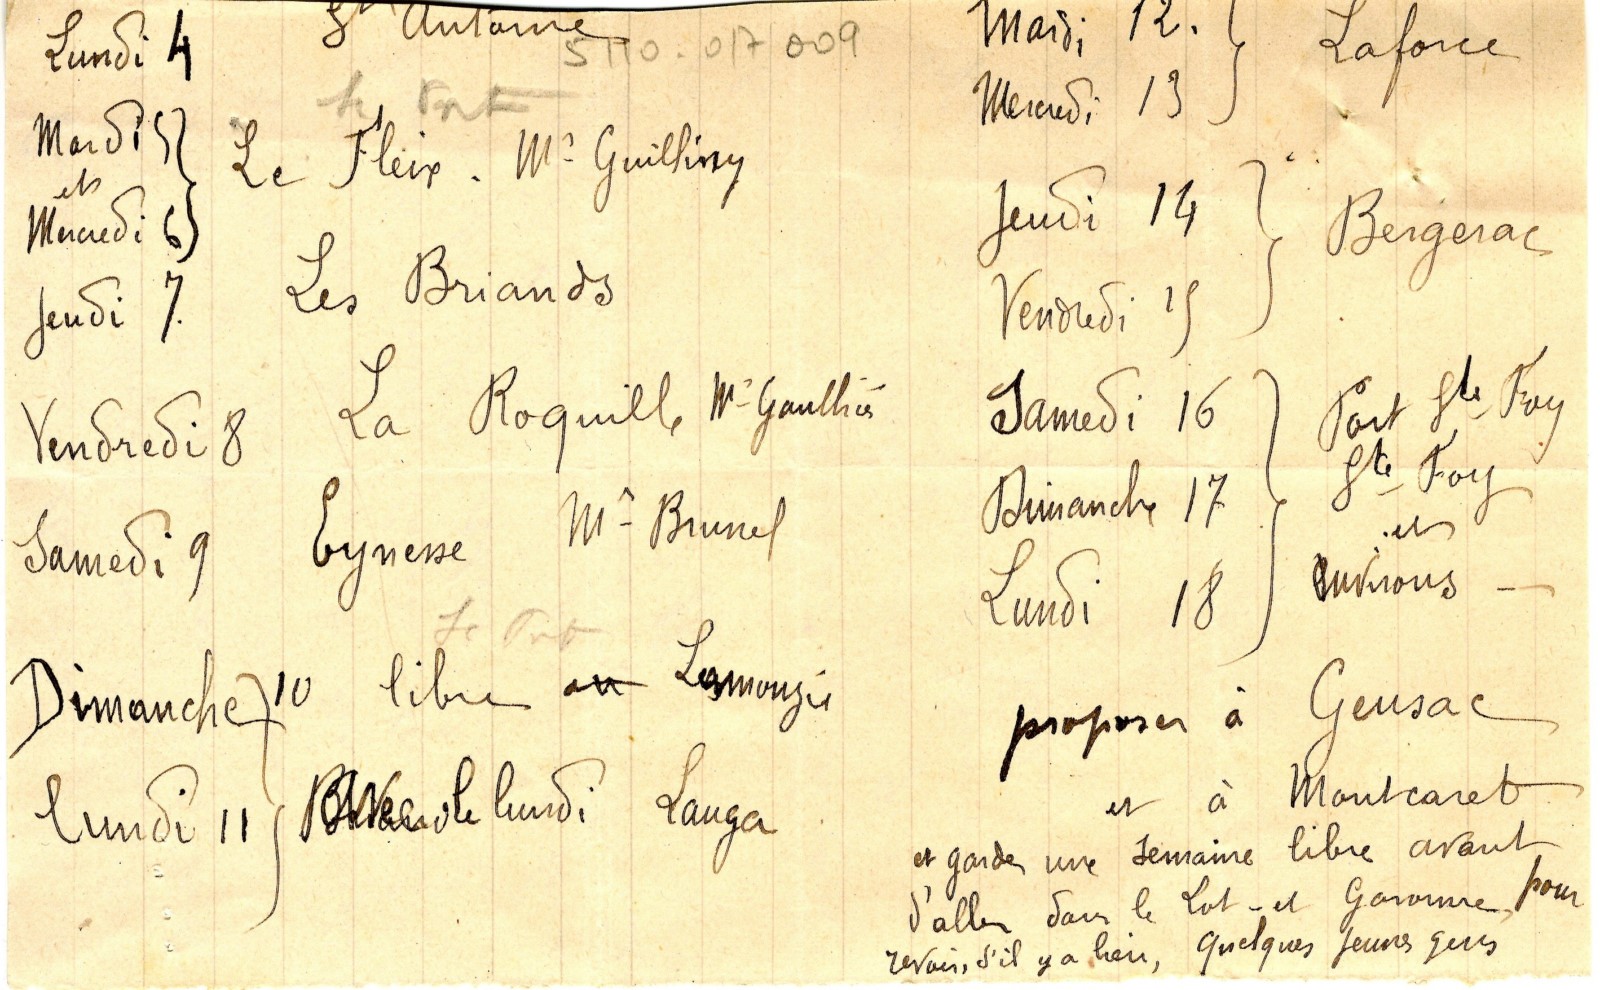 Lundi 4 St Antoine
5110.017 009
Le Port
Mardi 5
et
Mercredi 6
Le Fleix. Mr
Jeudi 7. Les Briands
Vendredi 8 La Roquille Mr Gaulthier
Samedi 9 Eynesse Mr Brunel
Le Port
Dimanche 10 libre ou Lamonzie
Lundi 11 le lundi Lauga
Mardi 12. Laforce
Mercredi 13
Jeudi 14 Bergerac
Vendredi 15
Samedi 16 Port Ste Foy
Dimanche 17 Ste Foy
et
Lundi 18 environs —
proposer à Gensac
et à Montcaret
et garder une semaine libre avant
d'aller dans le Lot-et Garonne, pour
revoir, s'il y a lieu, quelques jeunes gens